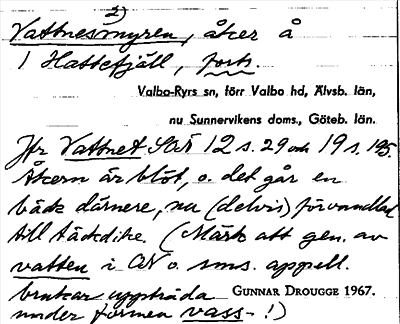 2)
Vattnesmyren, åker å
1 Hattefjäll, forts.
Valbo-Ryrs sn, förr Valbo hd, Älvsb. län,
nu Sunnervikens doms., Göteb. län.
Jfr Vattnet SOÄ 12 s. 29 och 19 s. 195.
Åkern är blöt, o. det går en
bäck därnere, nu (delvis) förvandlad
till täckdike. (Märk att gen. av
vatten i ON o. sms. appell.
brukar uppträda
under formen vass- !)
GUNNAR DROUGGE 1967.